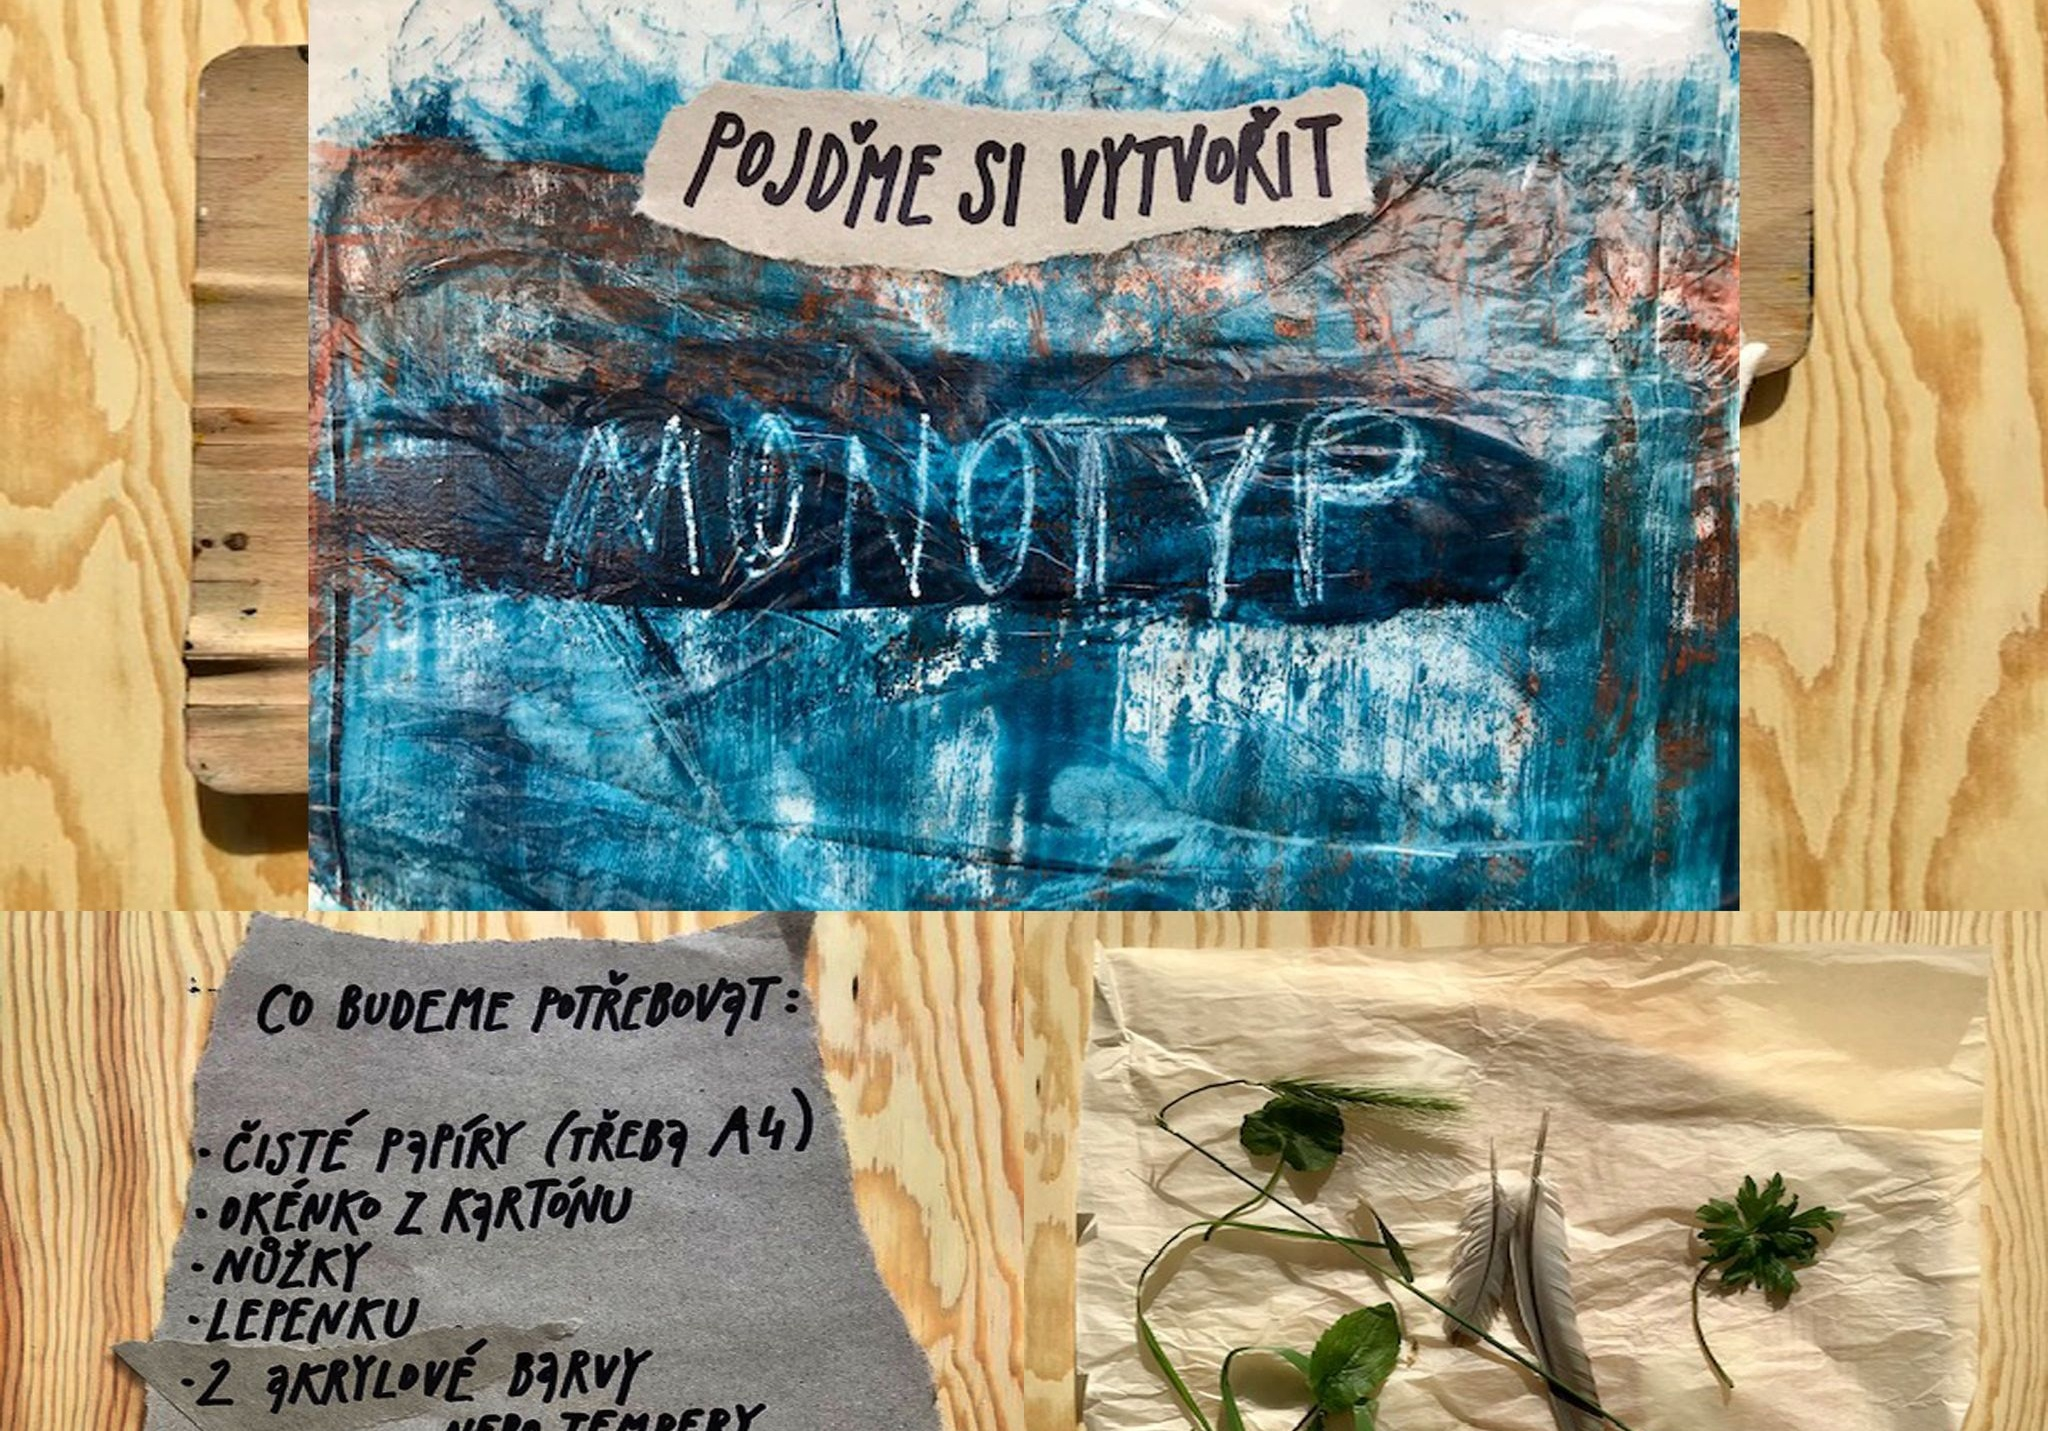 POJĎME SI VYTVOŘIT
MONOTYP
CO BUDEME POTŘEBOVAT:
· ČISTÉ PAPÍRY (TŘEBA A4)
· OKÉNKO Z KARTÓNU
· NŮŽKY
· LEPENKU
· 2 AKRYLOVÉ BARVY
NEBO TEMPERY